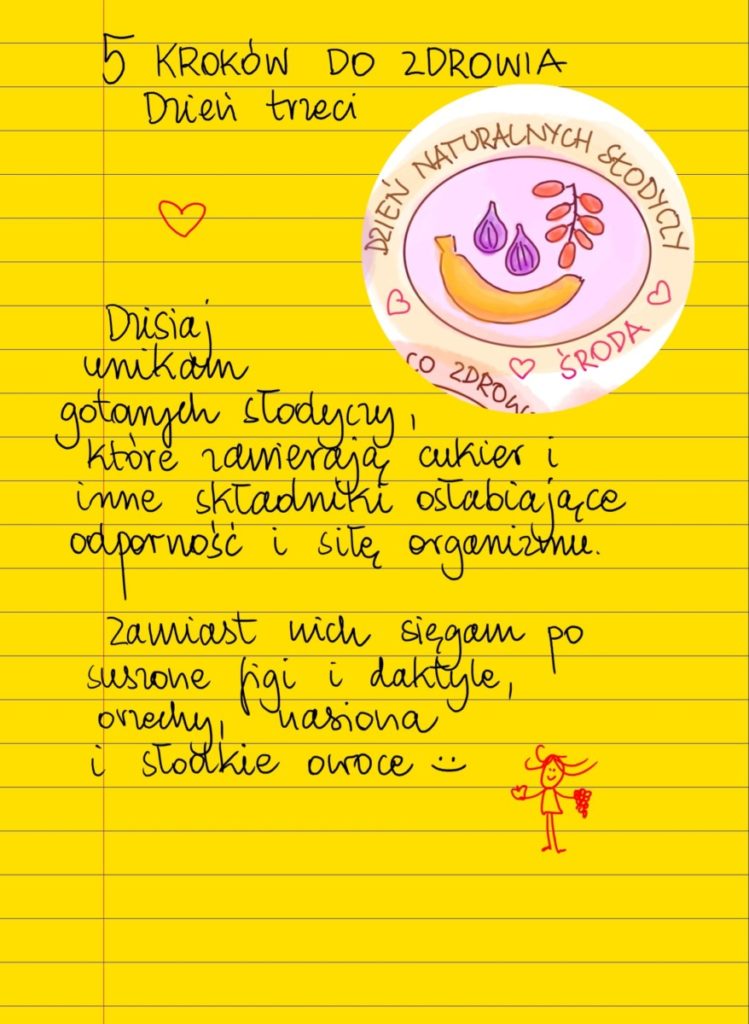 5 KROKÓW DO ZDROWIA
Dzień trzeci
DZIEŃ NATURALNYCH SŁODYCZY
ŚRODA
CO ZDROW
Dzisiaj
unikam
gotanych słodyczy,
które zawierają cukier i
inne składniki osłabiające
odporność i siłę organizmu.
Zamiast nich sięgam po
suszone figi i daktyle,
orzechy, nasiona
i słodkie owoce :)